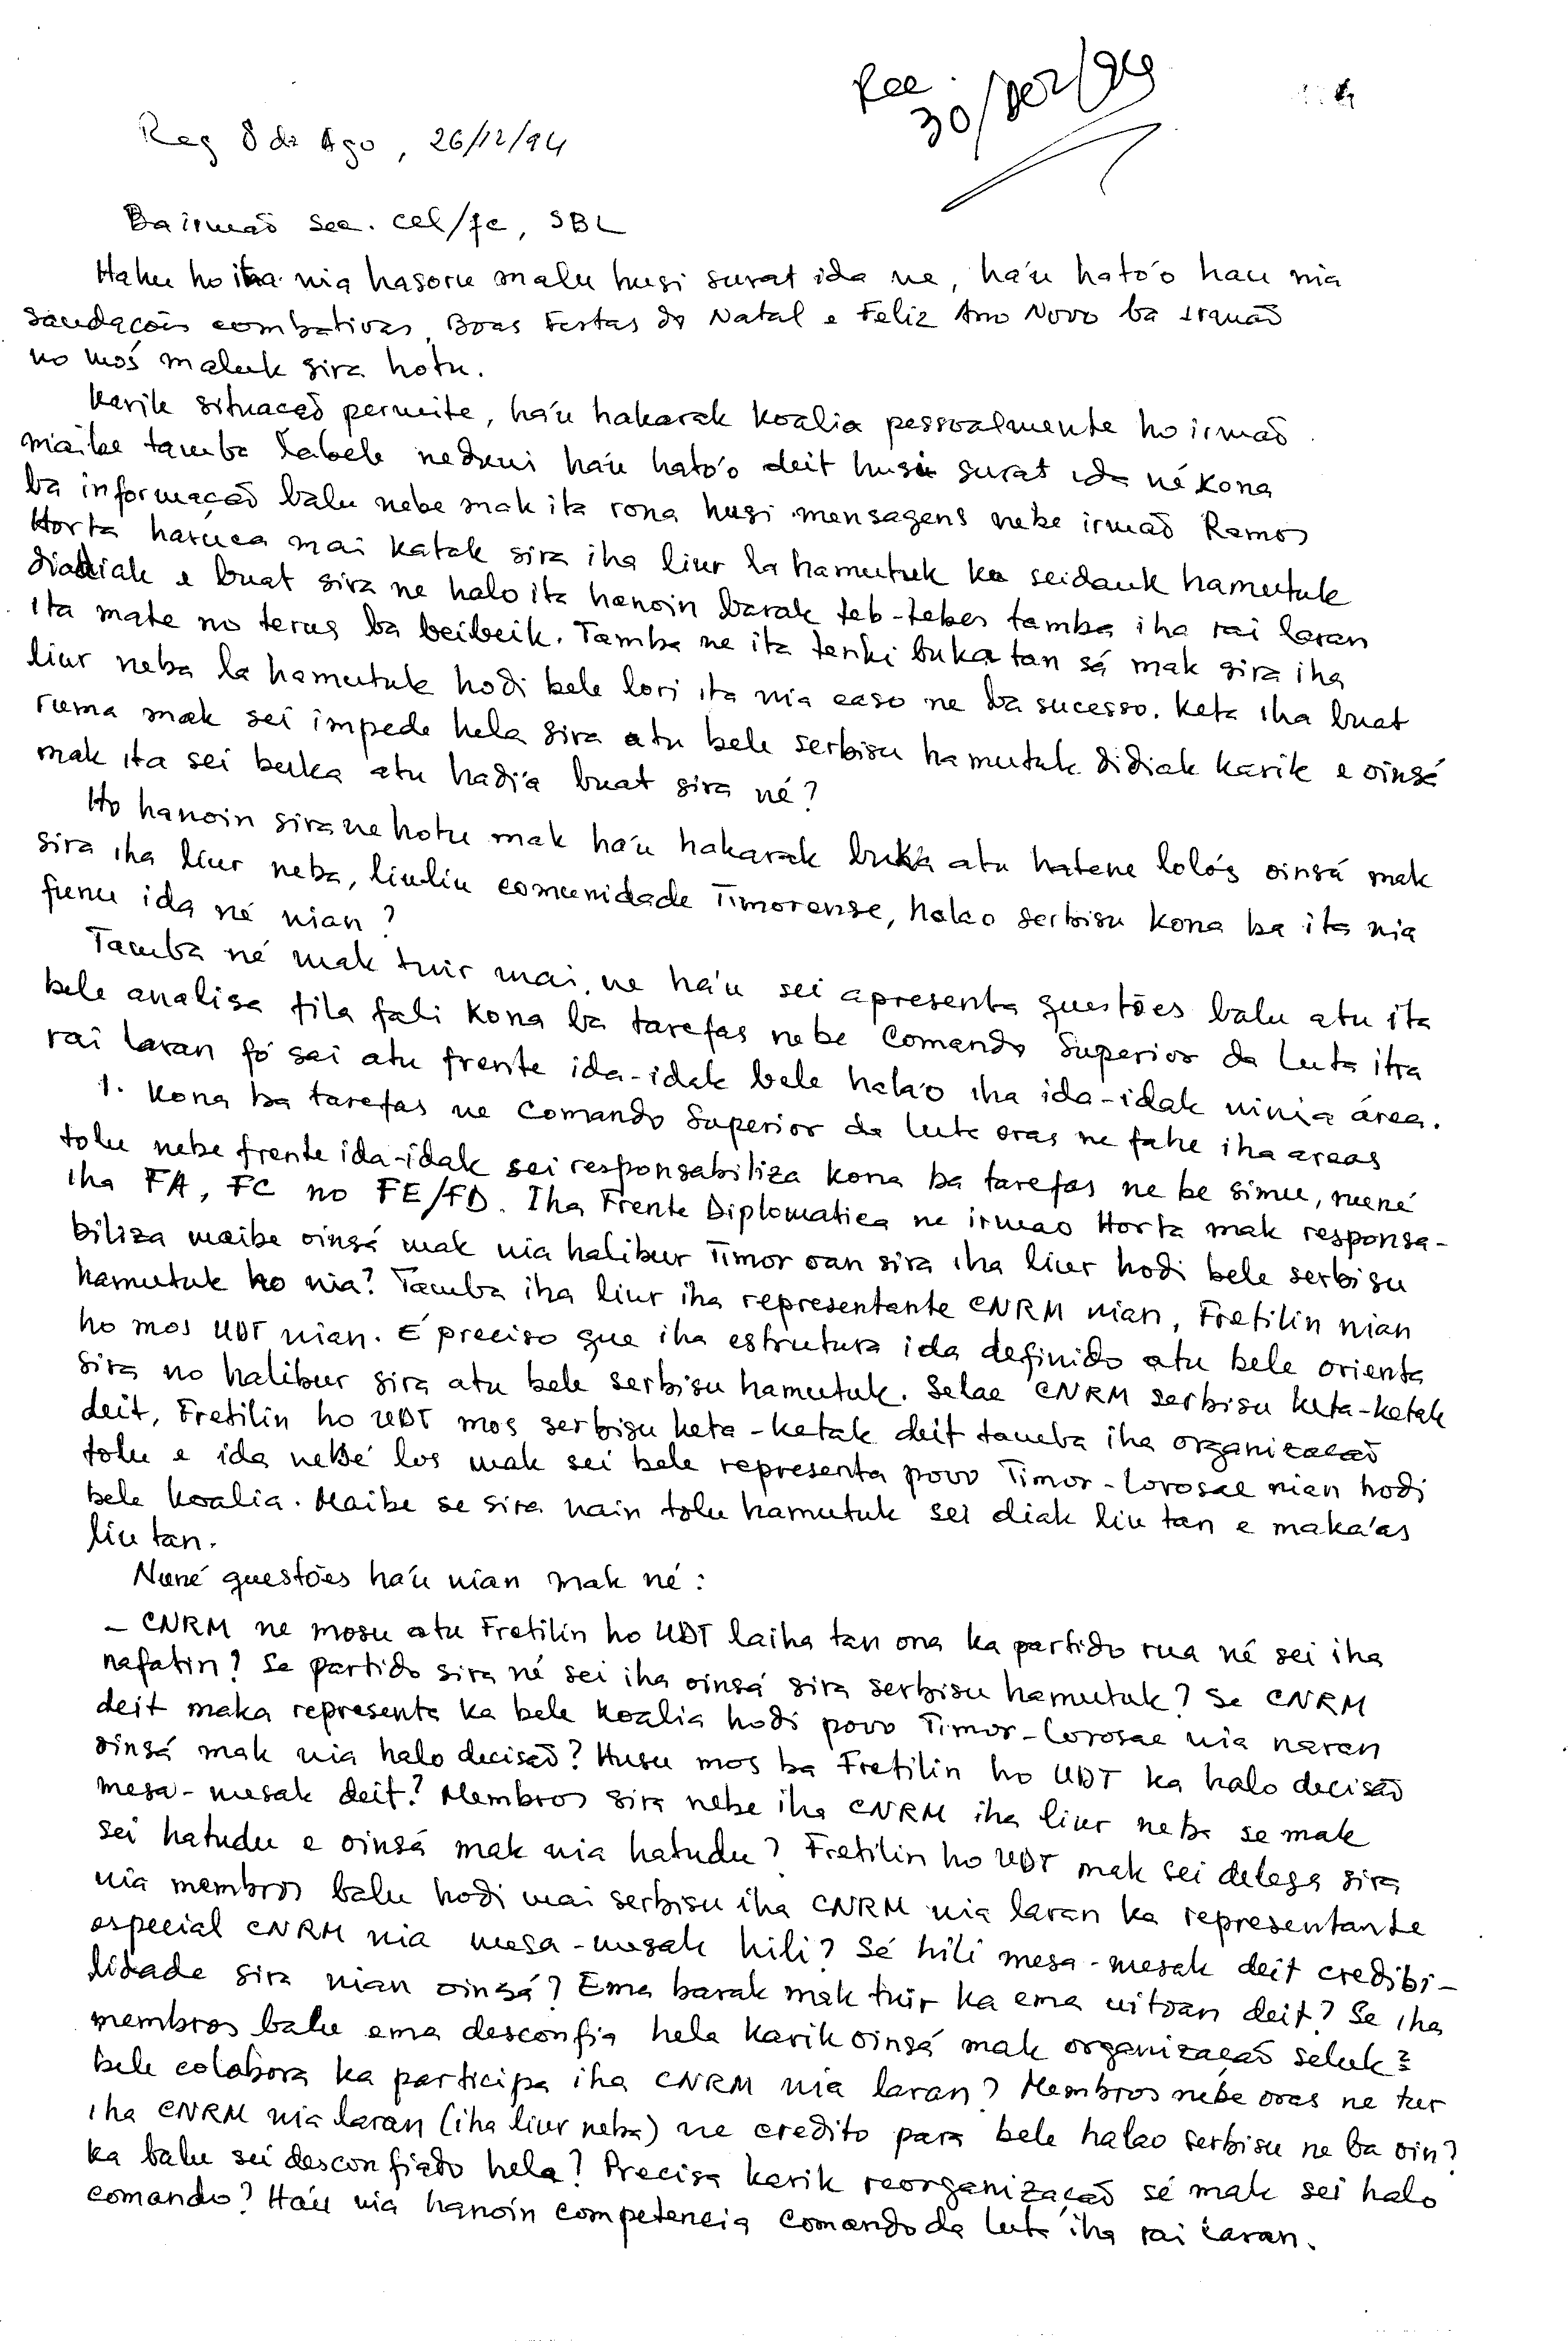 Rec.
30/Dez/94
Reg 8 de Ago, 26/12/94
Ba irmaõ Sec. CEL/FC, SBL
Hahu ho ita nia hasoru malu husi surat ida ne, ha'u hato'o hau nia
saudações combativas, Boas Festas do Natal e Feliz Ano Novo ba irmaõ
no mos maluk sira hotu.
Karik situaçaõ permite, ha'u hakarak koalia pessoalmente ho irmaõ
maibe tamba labele neduni ha'u hato'o deit husi surat ida né kona
ba informaçaõ balu nebe mak ita rona husi mensagens nebe irmaõ Ramos
Horta haruca mai katak sira iha liur la hamutuk ka seidauk hamutuk
diadiak e buat sira ne halo ita hanoin barak teb-tebes tamba iha rai laran
ita mate no terus ba beibeik. Tamba ne ita tenki buka tan sá mak sira iha
liur neba la hamutuk hodi bele lori ita nia caso ne ba sucesso. Keta iha buat
ruma mak sei impede hela sira atu bele serbisu hamutuk didiak karik e oinsá
mak ita sei buka atu hadi'a buat sira né?
Ho hanoin sira ne hotu mak ha'u hakarak buka atu hatene lolós oinsá mak
sira iha liur neba, liuliu comunidade Timorense, halao serbisu kona ba ita nia
funu ida né nian?
Tamba né mak tuir mai ne ha'u sei apresenta questões balu atu ita
bele analisa fila fali kona ba tarefas nebe Comando Superior da Luta iha
rai laran fó sai atu frente ida-idak bele hala'o iha ida-idak ninia área.
1. Kona ba tarefas ne Comando Superior da luta oras ne fahe iha areas
tolu nebe frente ida-idak sei responsabiliza kona ba tarefas ne be simu, nuné
iha FA, FC no FE/FD. Iha Frente Diplomatica ne irmao Horta mak responsa-
biliza maibe oinsá mak nia halibur Timor oan sira iha liur hodi bele serbisu
hamutuk ho nia? Tamba iha liur iha representante CNRM nian, Fretilin nian
ho mos UDT nian. É preciso que iha estrutura ida definido atu bele orienta
sira no halibur sira atu bele serbisu hamutuk. Selae CNRM serbisu keta-ketak
deit, Fretilin ho UDT mos serbisu keta-ketak deit tamba iha organizaçaõ
tolu e ida nebé los mak sei bele representa povo Timor-Lorosae nian hodi
bele koalia. Maibe se sira nain tolu hamutuk sei diak liu tan e maka'as
liu tan.
Nuné questões ha'u nian mak né:
- CNRM ne mosu atu Fretilin ho UDT laiha tan ona ka partido rua né sei iha
nafatin? Se partido sira né sei iha oinsá sira serbisu hamutuk? Se CNRM
deit maka representa ka bele koalia hodi povo Timor-Lorosae nia naran
oinsá mak nia halo decisaõ? Husu mos ba Fretilin ho UDT ka halo decisaõ
mesa-mesak deit? Membros sira nebe iha CNRM iha liur neba se mak
sei hatudu e oinsá mak nia hatudu? Fretilin ho UDT mak sei delega sira
nia membros balu hodi mai serbisu iha CNRM nia laran ka representante
especial CNRM nia mesa-mesak hili? Sé hili mesa-mesak deit credibi-
lidade sira nian oinsá? Ema barak mak tuir ka ema uitoan deit? Se iha
membros balu ema desconfia hela karik oinsá mak organizaçaõ seluk?
bele colabora ka participa iha CNRM nia laran? Membros nebe oras ne tur
iha CNRM nia laran (iha liur neba) ne credito para bele halao serbisu ne ba oin?
ka balu sei desconfiado hela? Precisa karik reorganizaçaõ sé mak sei halo
comando? Ha'u nia hanoin competencia Comando da luta iha rai laran.